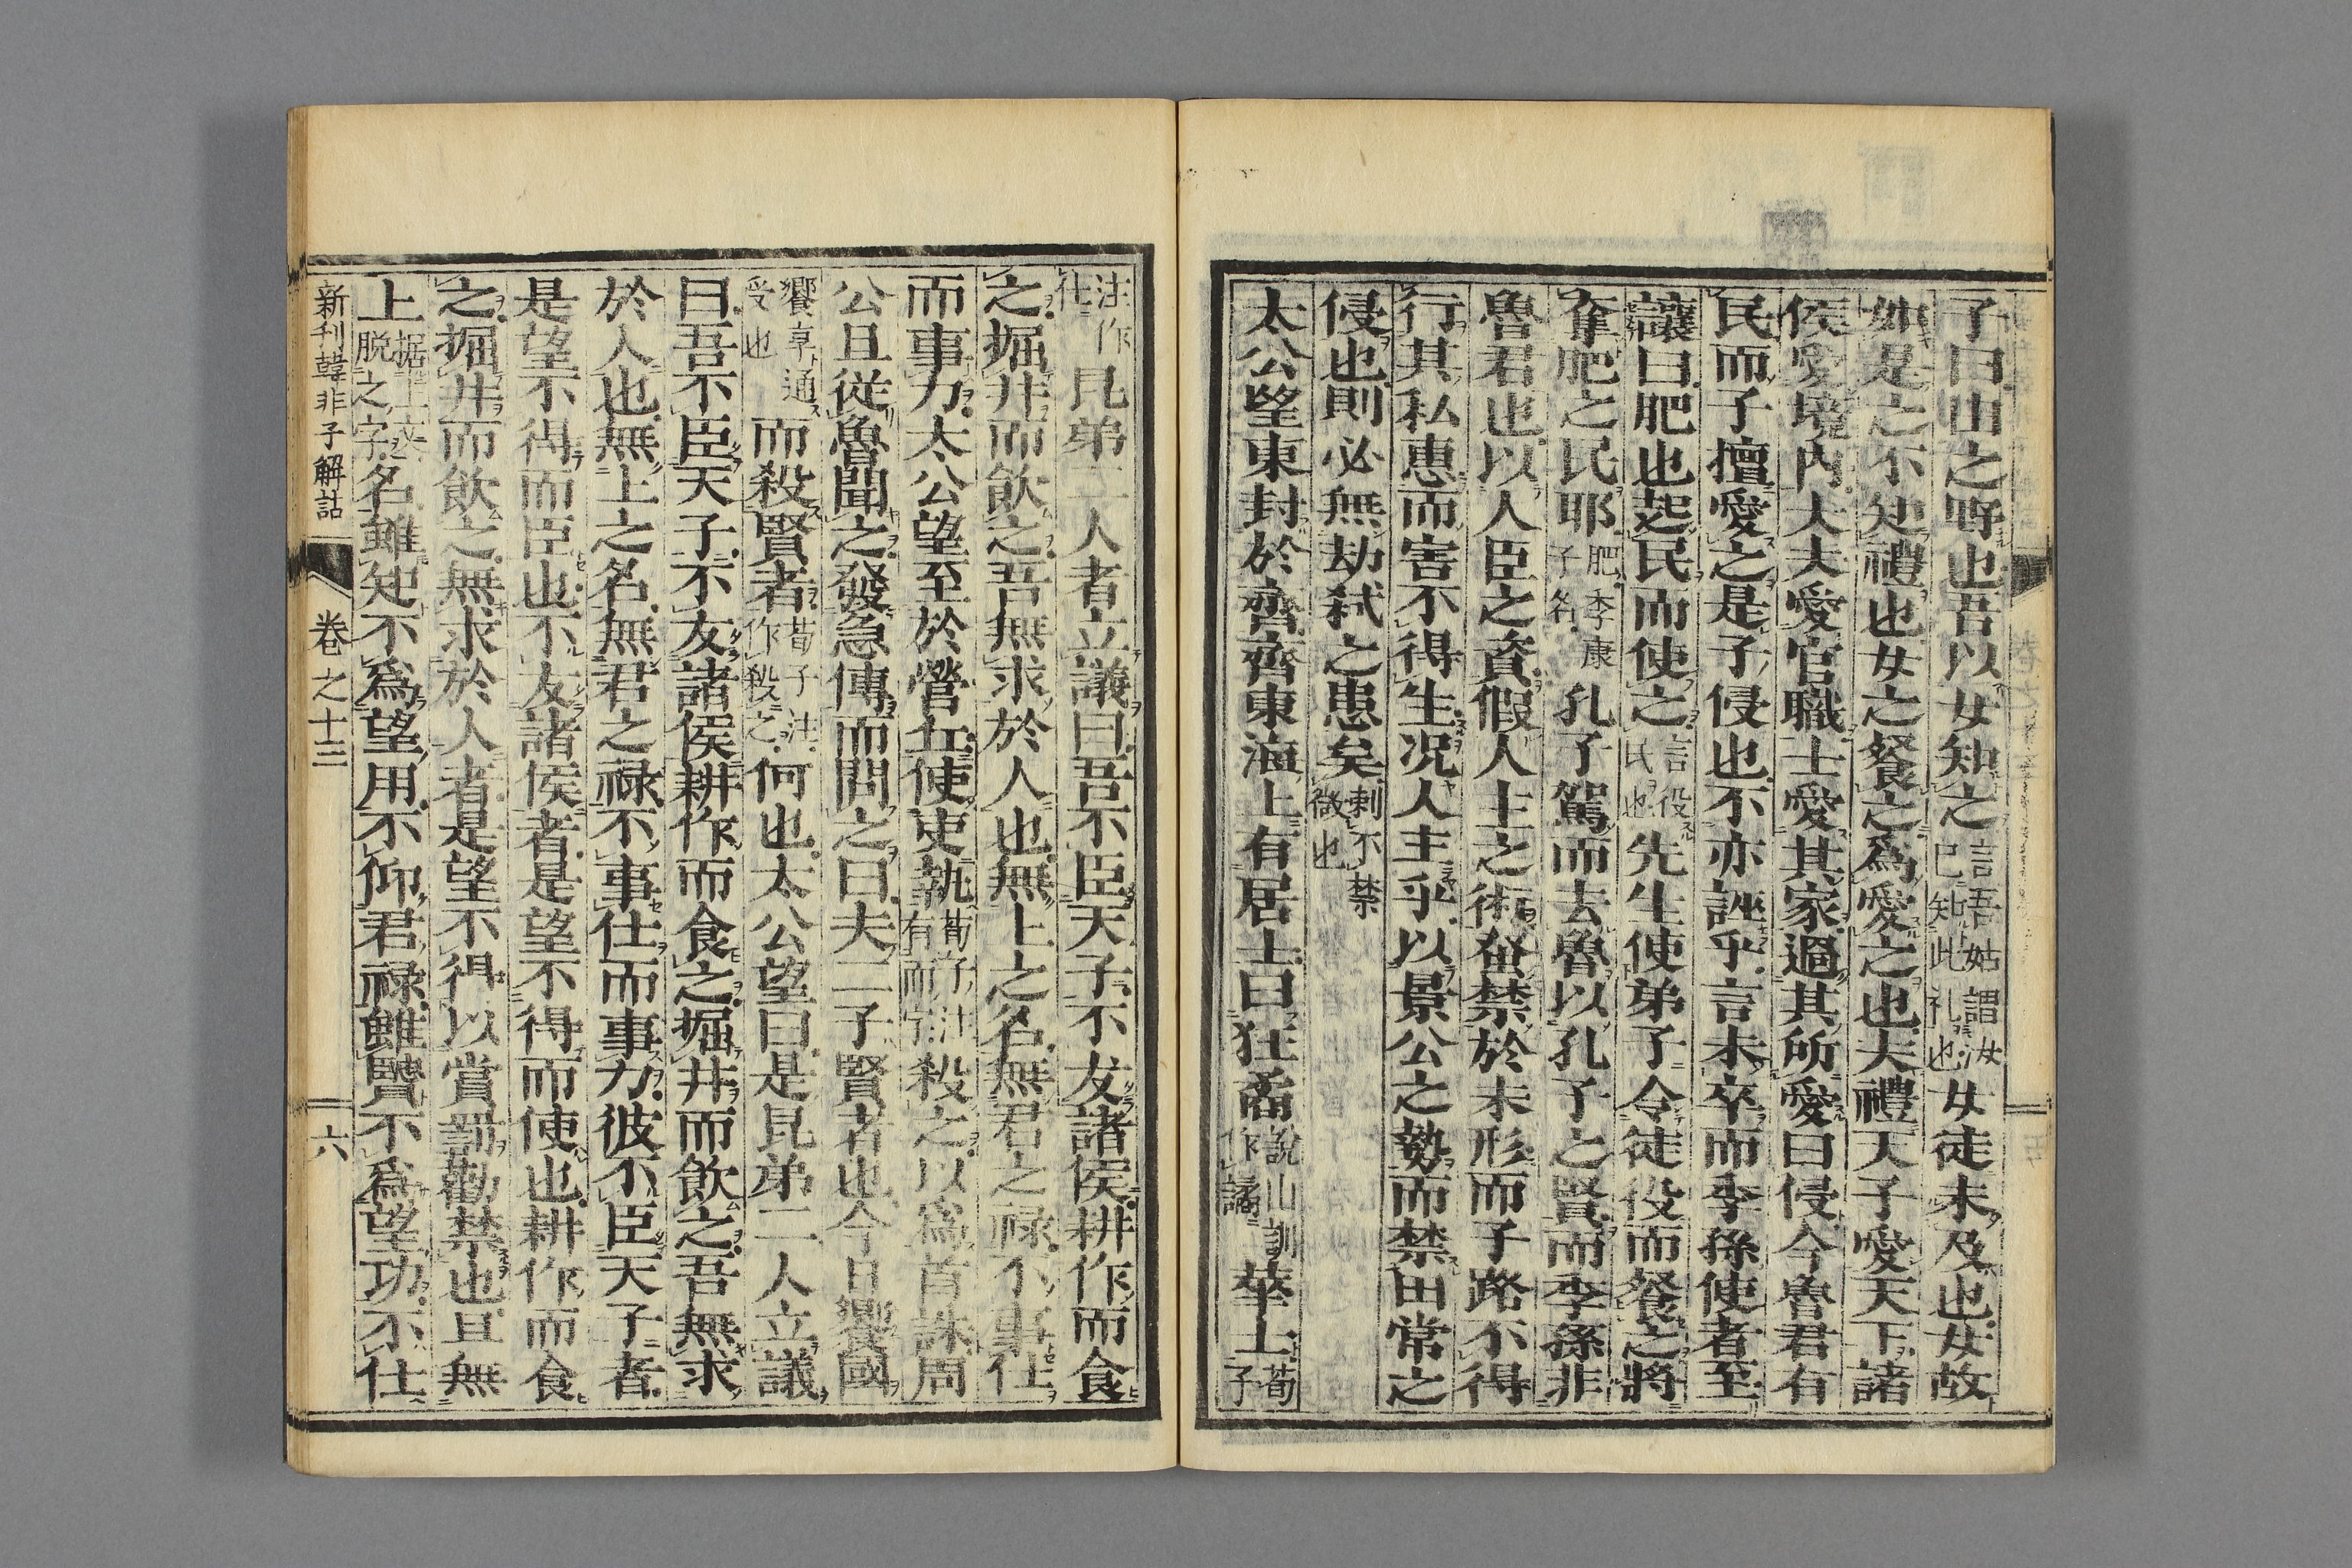 子曰由之野也吾以女知之言吾姑謂汝已知此礼也女徒未及也女故
如是之不知禮也女之餐之爲愛之也夫禮天子愛天下諸
侯愛境内大夫愛官職士愛其家過其所愛曰侵今魯君有
民而子擅愛之是子侵也不亦誣乎言未卒而季孫使者至
讓曰肥也起民而使之言役民也先生使弟子令徒役而餐之將
奪肥之民耶肥季康子名孔子駕而去魯以孔子之賢而季孫非
魯君也以人臣之資假人主之術蚤禁於未形而子路不得
行其私惠而害不得生况人主乎以景公之勢而禁田常之
侵也則必無劫弑之患矣刺不禁微也
太公望東封於齊齊東海上有居士曰狂矞說山訓作譎華士荀子
注作仕昆弟二人者立議曰吾不臣天子不友諸侯耕作而食
之掘井而飲之吾無求於人也無上之名無君之禄不事仕
而事力太公望至於營丘使吏執荀子注有而字殺之以爲首誅周
公旦從魯聞之發急傳而問之曰夫二子賢者也今日饗國
饗享通受也而殺賢者荀子注作殺之何也太公望曰是昆弟二人立議
曰吾不臣天子不友諸侯耕作而食之掘井而飲之吾無求
於人也無上之名無君之禄不事仕而事力彼不臣天子者
是望不得而臣也不友諸侯者是望不得而使也耕作而食
之掘井而飲之無求於人者是望不得以賞罰勸禁也且無
上据上文脱之字名雖知不爲望用不仰君禄雖賢不爲望功不仕
新刋韓非子解詁 卷之十三 六